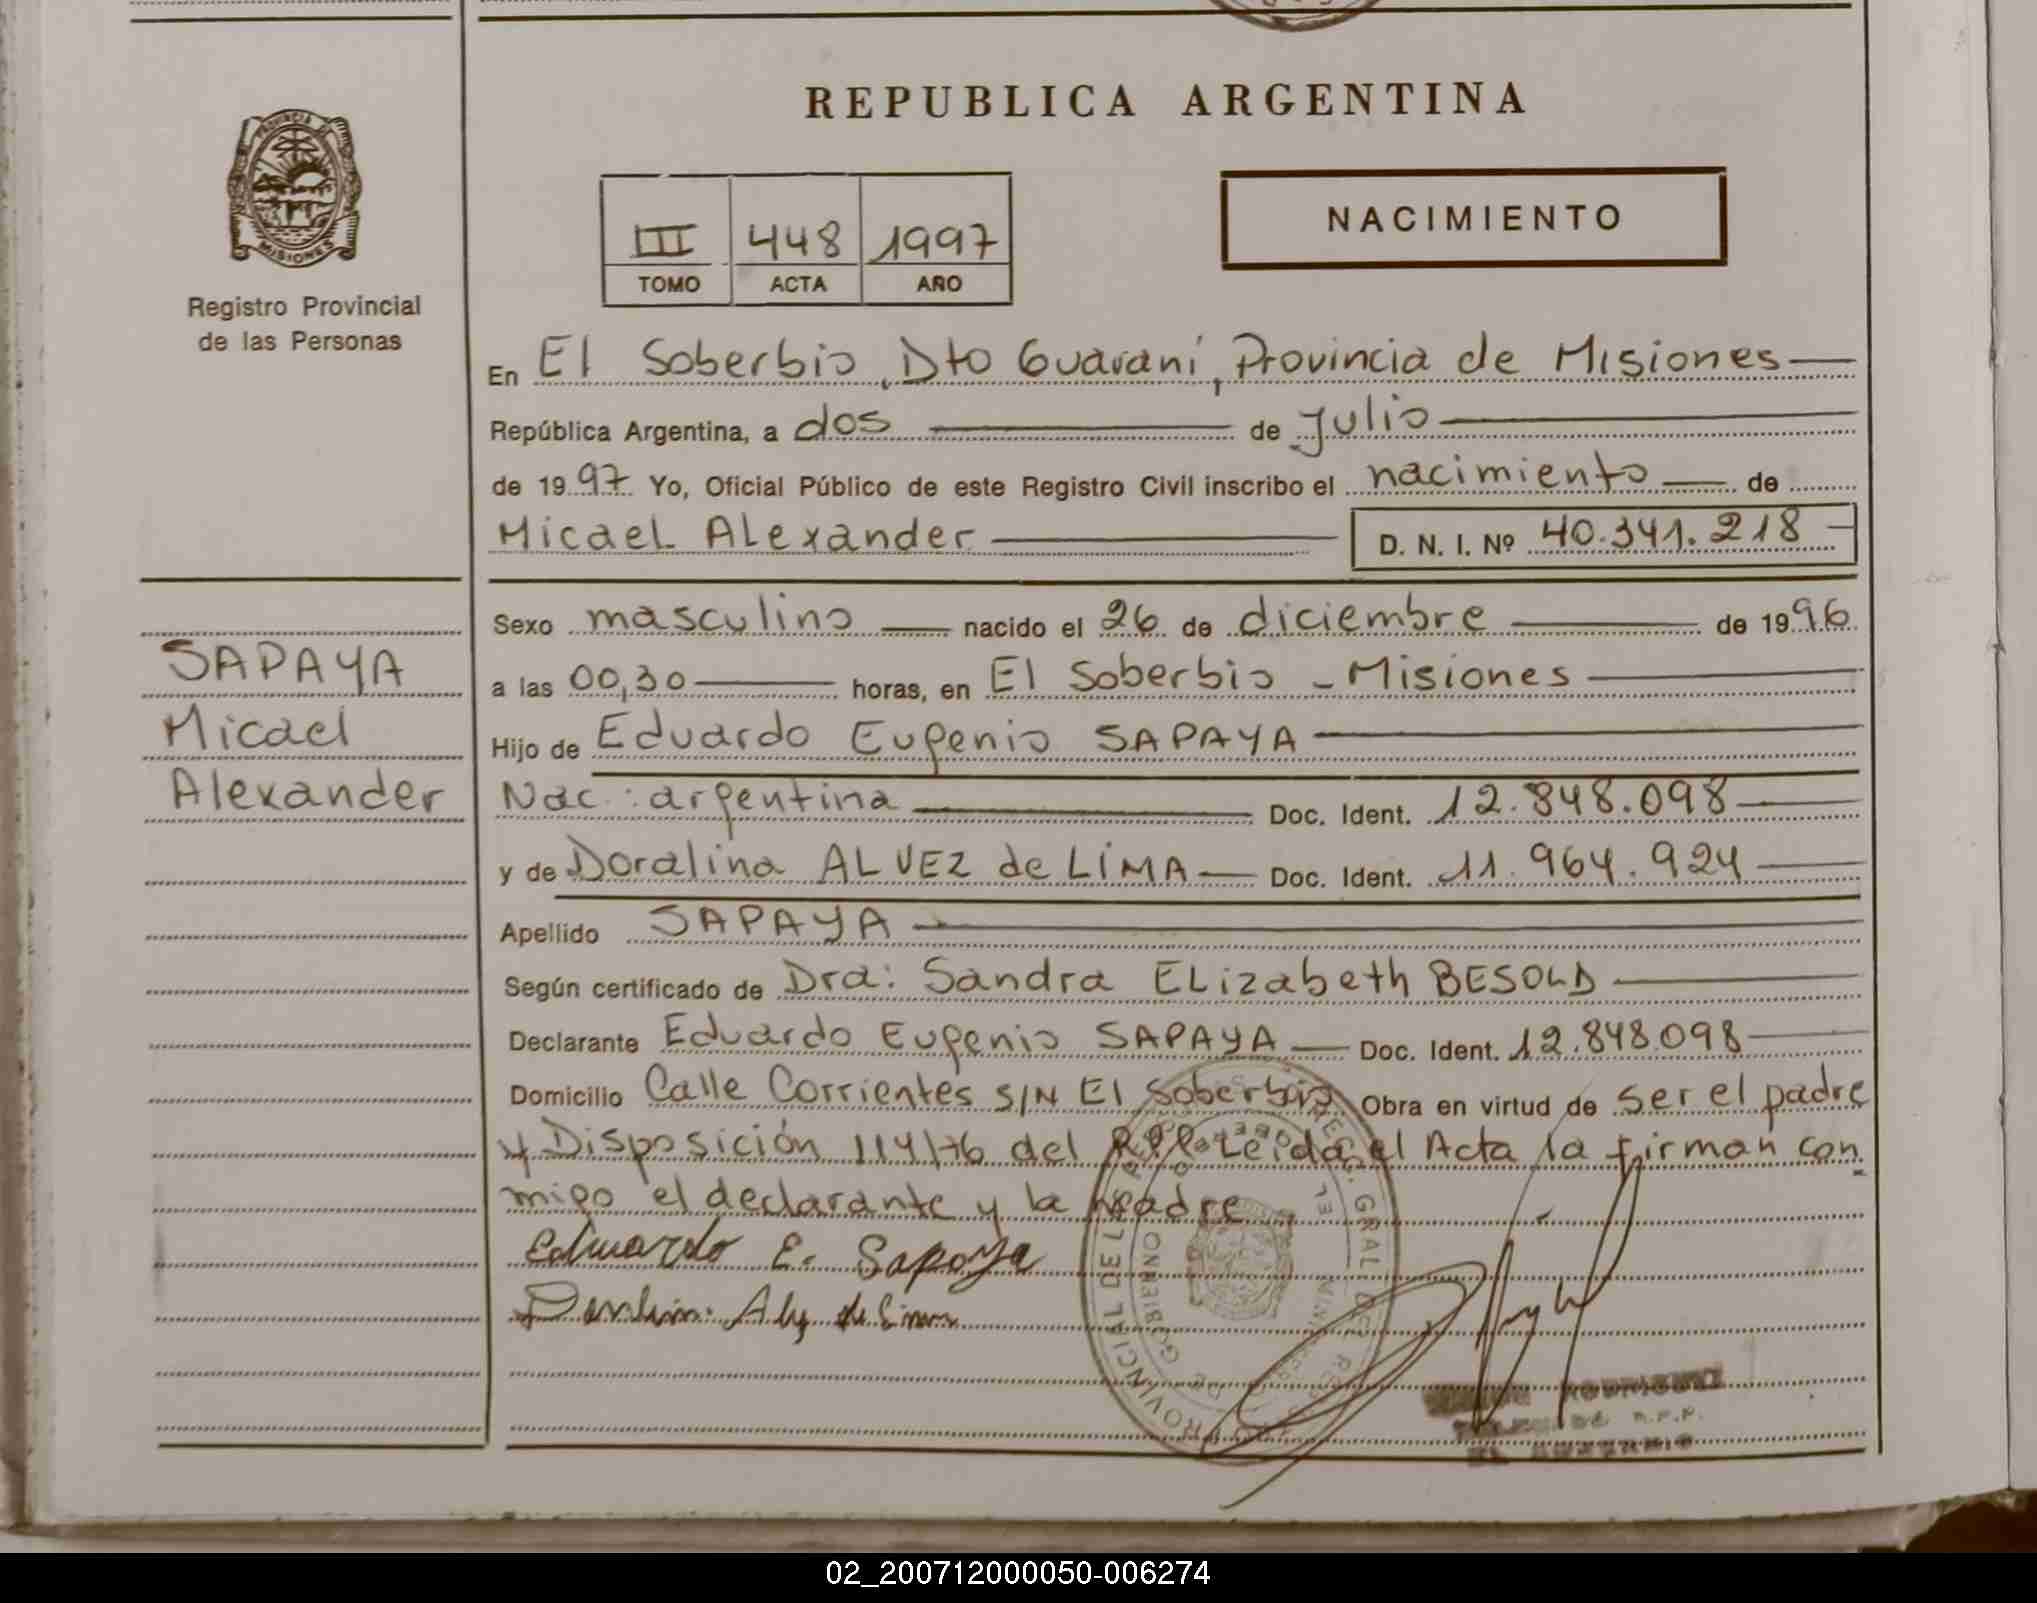 REPUBLICA ARGENTINA
PROVINCIA DE
MISIONES
Registro Provincial
de las Personas
NACIMIENTO
III 448 1997
TOMO ACTA AÑO
En El Soberbio, Dto Guaraní, Provincia de Misiones
República Argentina, a dos de Julio
de 1997 Yo, Oficial Público de este Registro Civil inscribo el nacimiento de
Micael Alexander D. N. I. Nº 40.341.218
SAPAYA
Micael
Alexander
Sexo masculino nacido el 26 de diciembre de 1996
a las 00,30 horas, en El Soberbio - Misiones
Hijo de Eduardo Eugenio SAPAYA
Nac: argentina Doc. Ident. 12.848.098
y de Doralina ALVEZ de LIMA Doc. Ident. 11.964.924
Apellido SAPAYA
Según certificado de Dra: Sandra ELizabeth BESOLD
Declarante Eduardo Eugenio SAPAYA Doc. Ident. 12.848.098
Domicilio Calle Corrientes S/N El Soberbio Obra en virtud de ser el padre
y Disposición 114/76 del R.P.P. Leida el Acta la firman con
migo el declarante y la madre
Eduardo E. Sapaya
RODRIGUEZ
02_200712000050-006274